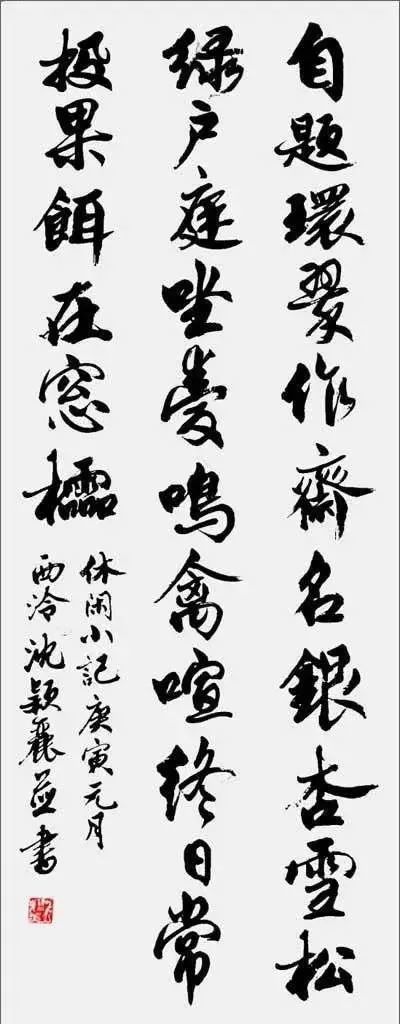 自題環翠作齋名銀杏雪松
綠戶庭坐愛鳴禽喧終日常
投果餌在窓櫺
休闲小記庚寅元月
西泠沈穎麗並書